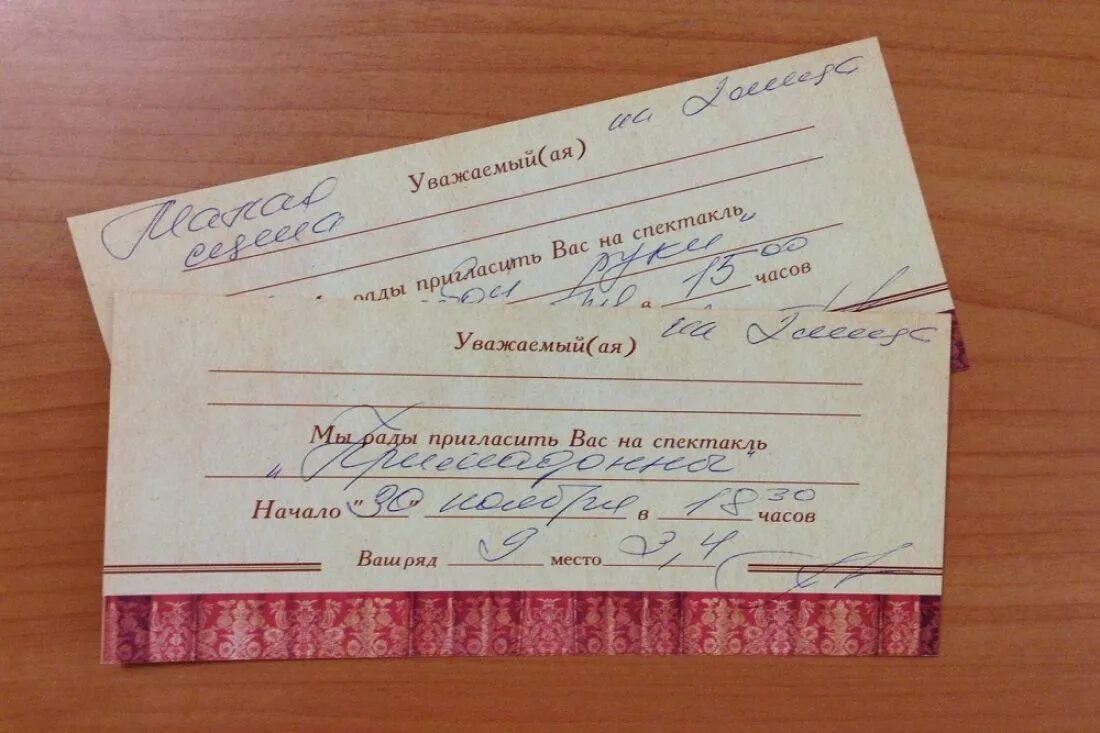 на 2 лица
Уважаемый(ая)
Малая
сцена
рады пригласить Вас на спектакль
руки"
в 15 00 часов
на 2 лица
Уважаемый(ая)
Мы рады пригласить Вас на спектакль
"Примадонны"
Начало "30" ноября в 18 30 часов
Ваш ряд 9 место 3,4